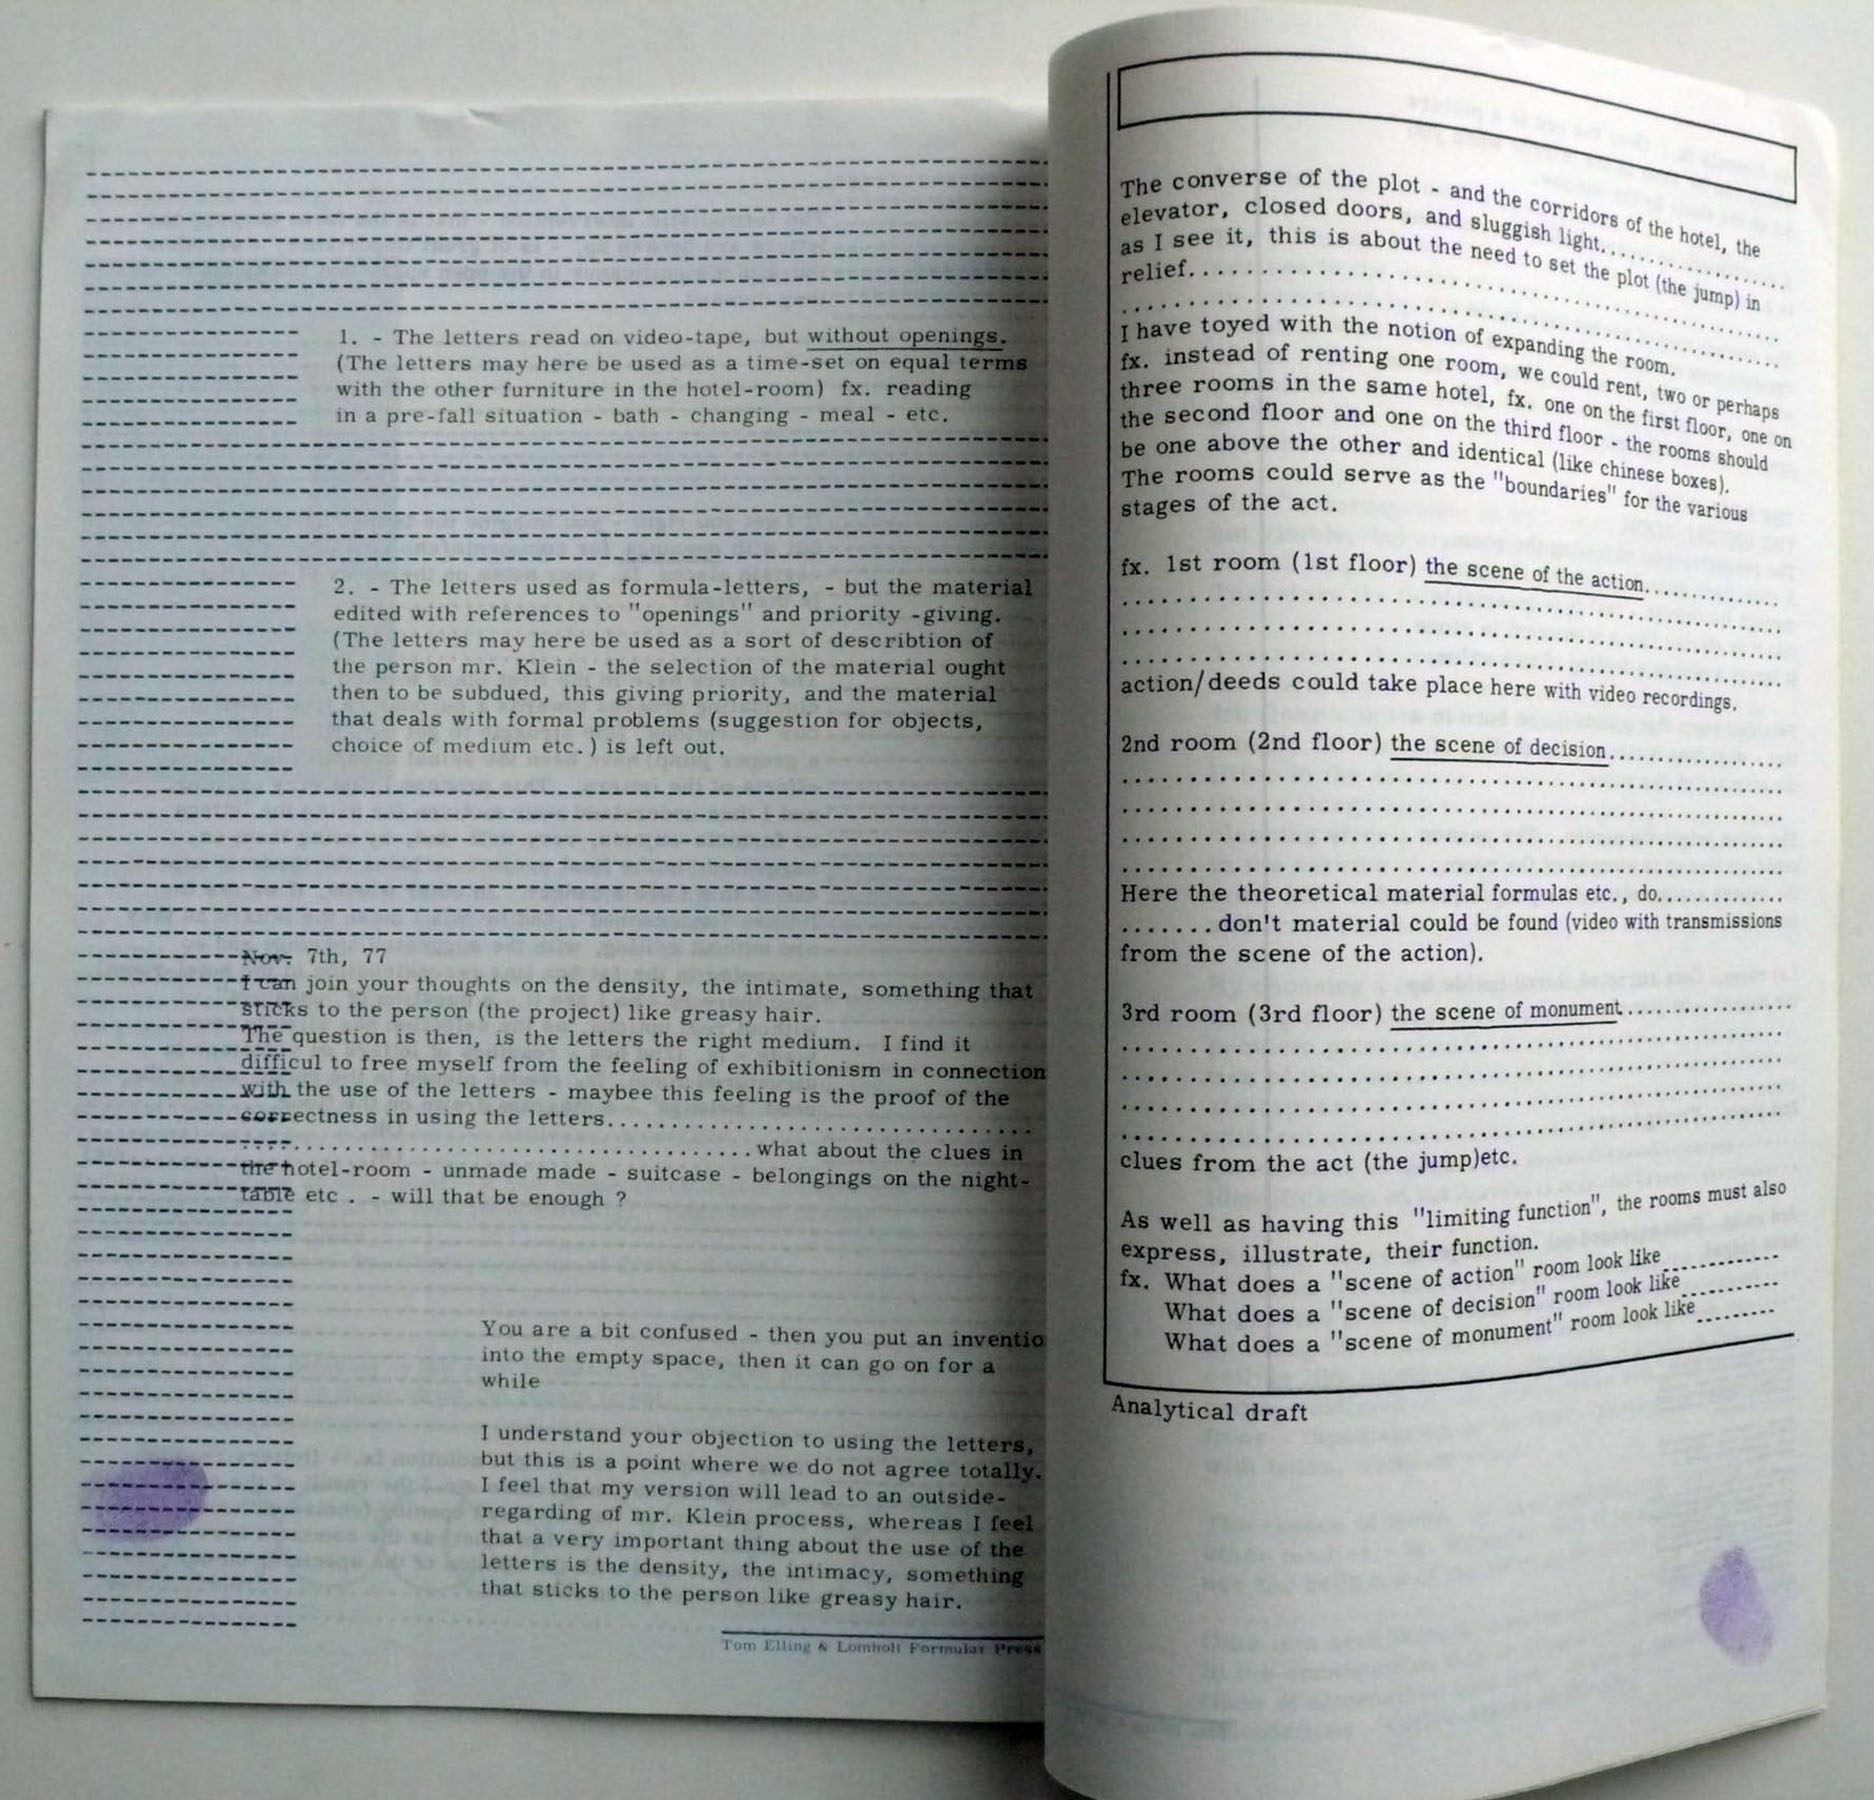 1. - The letters read on video-tape, but without openings.
(The letters may here be used as a time-set on equal terms
with the other furniture in the hotel-room) fx. reading
in a pre-fall situation - bath - changing - meal - etc.
2. - The letters used as formula-letters, - but the material
edited with references to "openings" and priority -giving.
(The letters may here be used as a sort of describtion of
the person mr. Klein - the selection of the material ought
then to be subdued, this giving priority, and the material
that deals with formal problems (suggestion for objects,
choice of medium etc.) is left out.
Nov. 7th, 77
I can join your thoughts on the density, the intimate, something that
sticks to the person (the project) like greasy hair.
The question is then, is the letters the right medium. I find it
difficul to free myself from the feeling of exhibitionism in connection
with the use of the letters - maybee this feeling is the proof of the
correctness in using the letters..............................
.....................................what about the clues in
the hotel-room - unmade made - suitcase - belongings on the night-
table etc . - will that be enough ?
You are a bit confused - then you put an inventio
into the empty space, then it can go on for a
while
I understand your objection to using the letters,
but this is a point where we do not agree totally.
I feel that my version will lead to an outside-
regarding of mr. Klein process, whereas I feel
that a very important thing about the use of the
letters is the density, the intimacy, something
that sticks to the person like greasy hair.
Tom Elling & Lomholt Formular Press
The converse of the plot - and the corridors of the hotel, the
elevator, closed doors, and sluggish light..................
as I see it, this is about the need to set the plot (the jump) in
relief..............................................
I have toyed with the notion of expanding the room.
fx. instead of renting one room, we could rent, two or perhaps
three rooms in the same hotel, fx. one on the first floor, one on
the second floor and one on the third floor - the rooms should
be one above the other and identical (like chinese boxes).
The rooms could serve as the "boundaries" for the various
stages of the act.
fx. 1st room (1st floor) the scene of the action..............
action/deeds could take place here with video recordings.
2nd room (2nd floor) the scene of decision....................
Here the theoretical material formulas etc., do..............
.......don't material could be found (video with transmissions
from the scene of the action).
3rd room (3rd floor) the scene of monument...................
clues from the act (the jump)etc.
As well as having this "limiting function", the rooms must also
express, illustrate, their function.
fx. What does a "scene of action" room look like............
What does a "scene of decision" room look like..........
What does a "scene of monument" room look like.........
Analytical draft